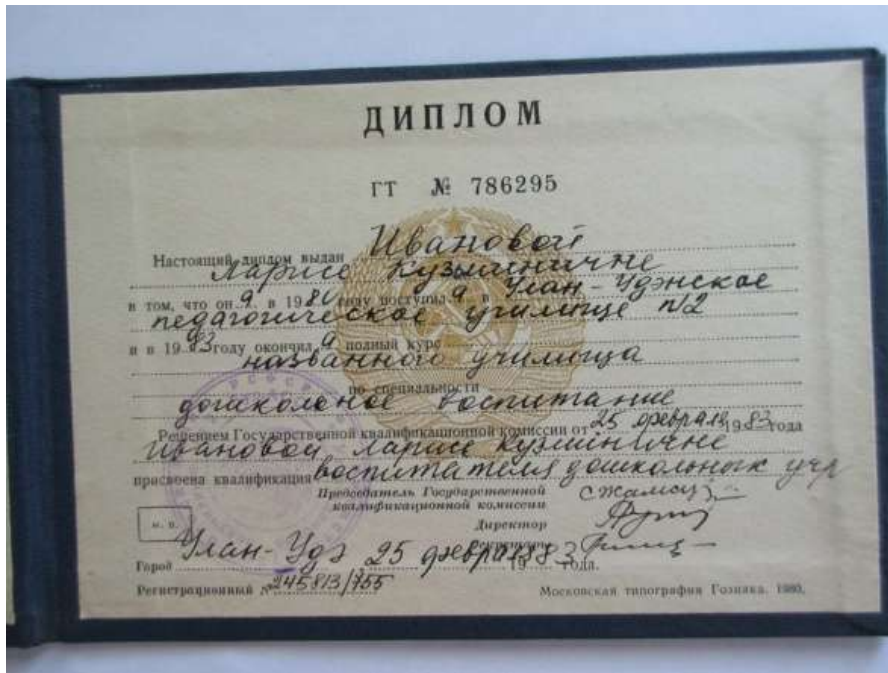 ДИПЛОМ
ГТ № 786295
Настоящий диплом выдан Ивановой
Ларисе Кузьминичне
в том, что он а. в 1980 году поступил а в Улан-Удэнское
педагогическое училище №2
и в 1983 году окончил а полный курс
названного училища
по специальности
дошкольное воспитание
Решением Государственной квалификационной комиссии от 25 февраля 1983 года
Ивановой Ларисе Кузминичне
присвоена квалификация воспитателя дошкольных учр
Председатель Государственной
квалификационной комиссии
Директор
Секретарь
М. П.
Город Улан-Удэ 25 февраля 1983 года.
Регистрационный № 245813/755
Московская типография Гознака. 1980.